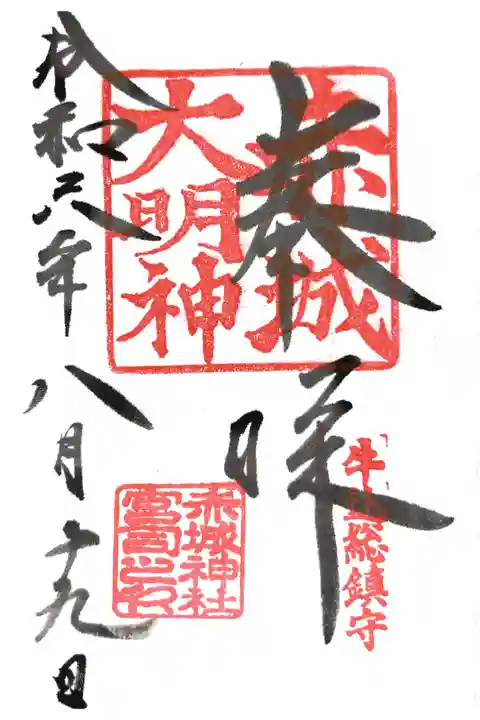 奉拝
赤城
大明神
牛込総鎮守
赤城神社
宮司之印
令和六年八月十九日